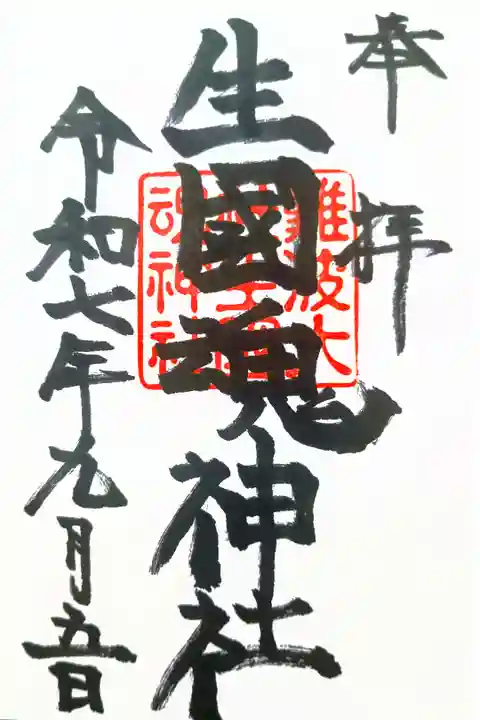 奉拝
生國魂神社
難波大
魂神社
令和七年九月五日